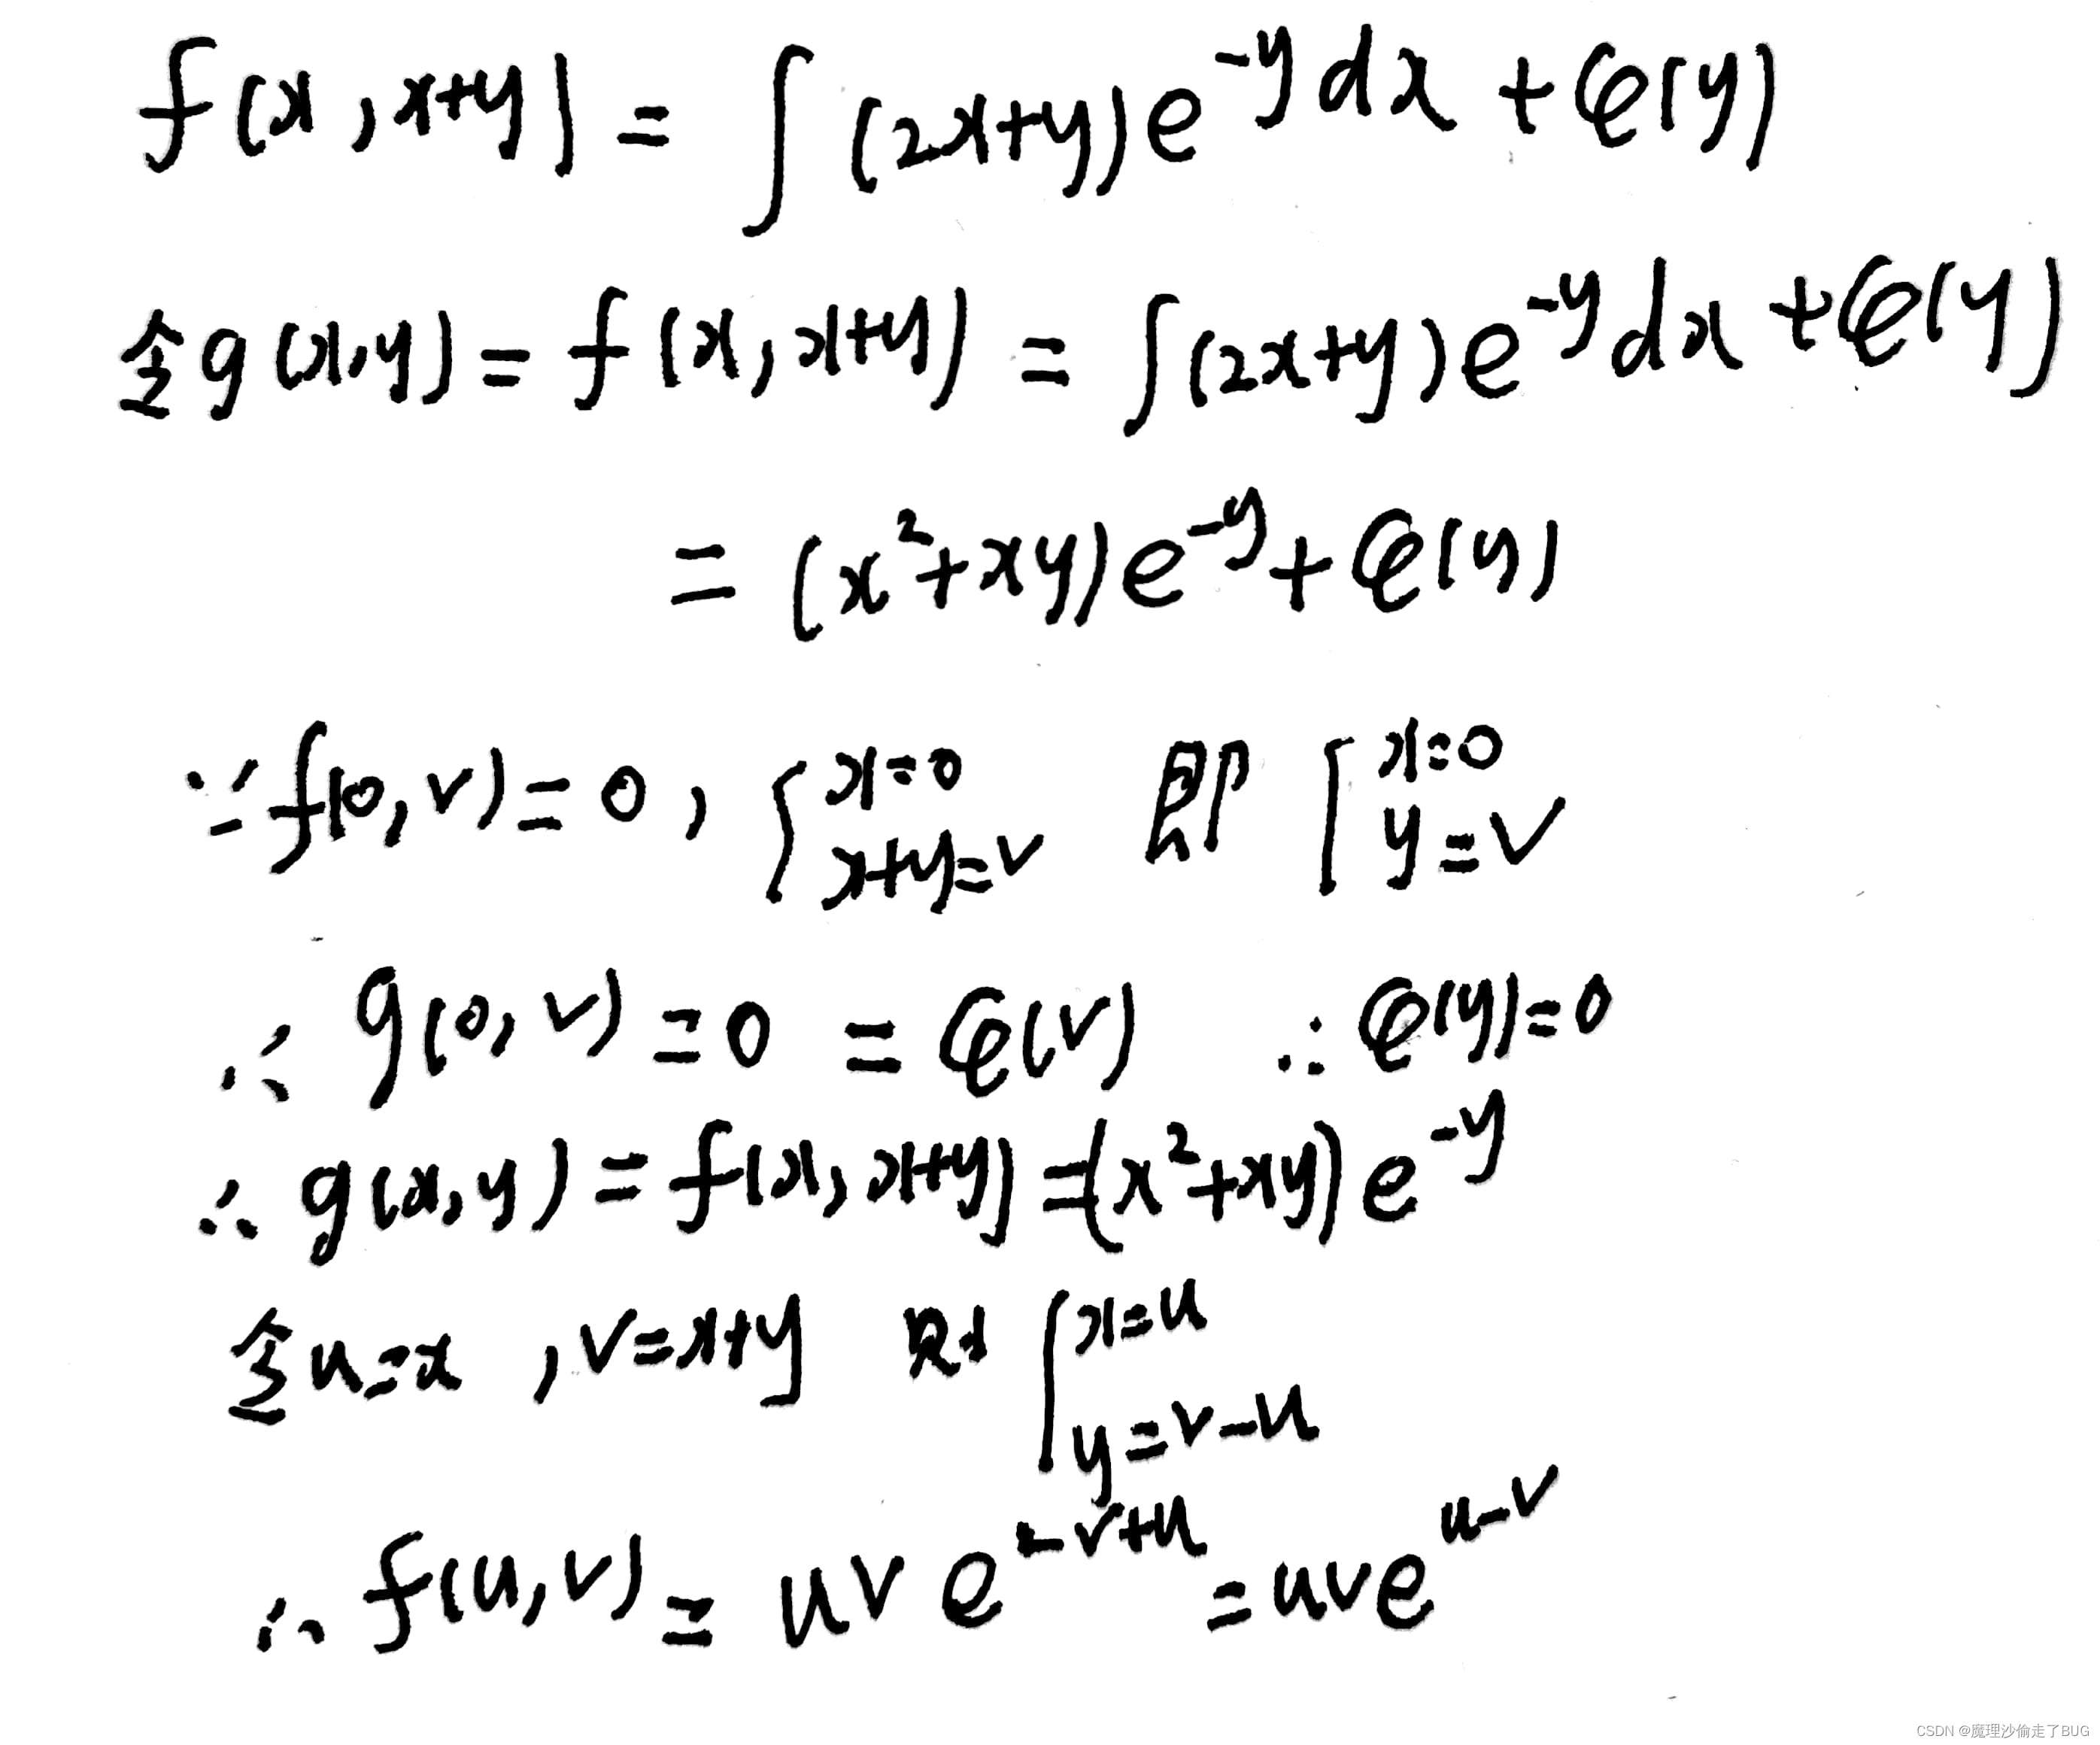 f(x, x+y) = ∫ (2x+y)e^{-y} dx + φ(y)
令 g(x,y) = f(x, x+y) = ∫(2x+y)e^{-y}dx + φ(y)
= (x²+xy)e^{-y} + φ(y)
∵ f(0,v) = 0, { x=0 x+y=v 即 { x=0 y=v
∴ g(0,v) = 0 = φ(v) ∴ φ(y)=0
∴ g(x,y) = f(x, x+y) = (x²+xy)e^{-y}
令 u=x, v=x+y 则 { x=u y=v-u
∴ f(u,v) = uv e^{-v+u} = uve^{u-v}
CSDN @魔理沙偷走了BUG